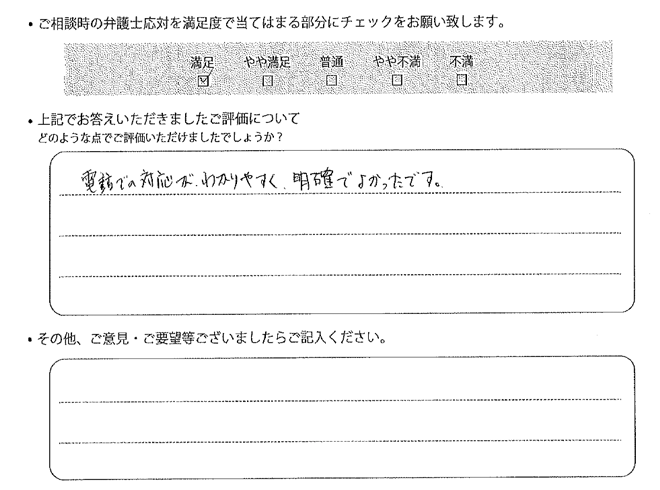 ・ご相談時の弁護士応対を満足度で当てはまる部分にチェックをお願い致します。
満足 やや満足 普通 やや不満 不満
☑ □ □ □ □
・上記でお答えいただきましたご評価について
どのような点でご評価いただけましたでしょうか？
電話での対応が、わかりやすく、明確でよかったです。
・その他、ご意見・ご要望等ございましたらご記入ください。